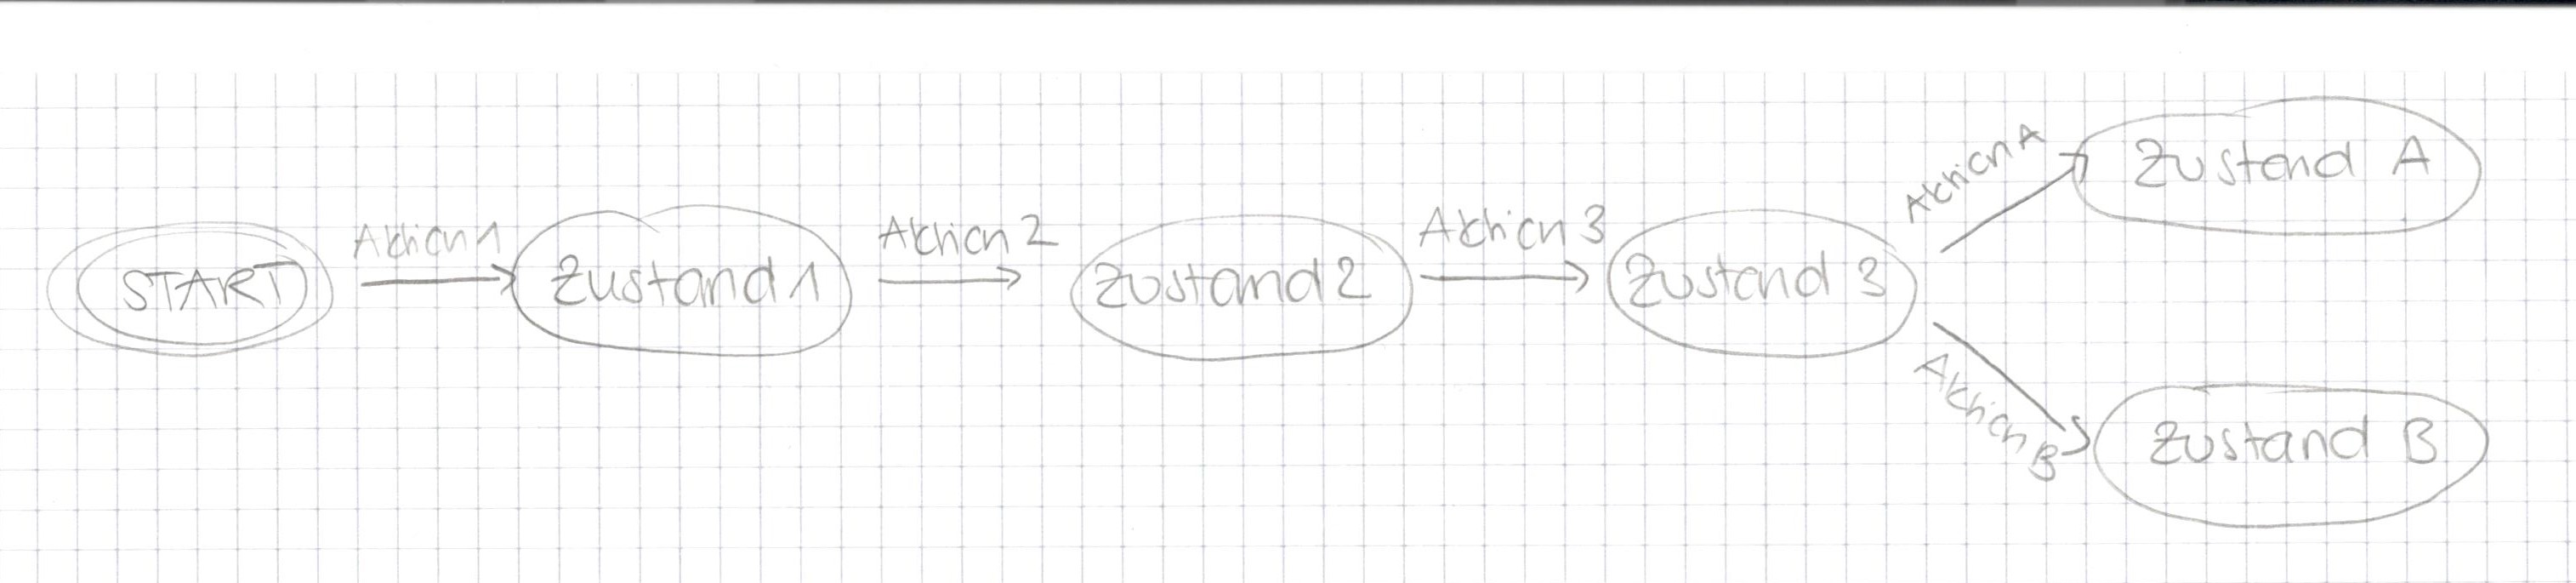 START
Aktion 1
Zustand 1
Aktion 2
Zustand 2
Aktion 3
Zustand 3
Aktion A
Zustand A
Aktion B
Zustand B